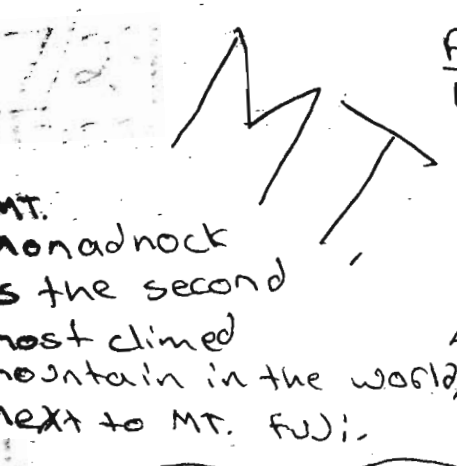 MT.
MT.
monadnock
s the second
most climed
mountain in the world,
next to MT. Fuji.